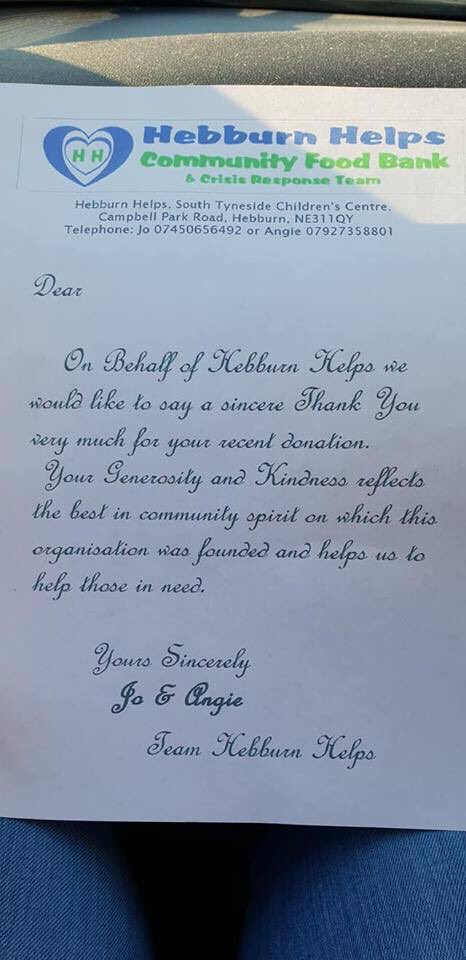 H H
Hebburn Helps
Community Food Bank
& Crisis Response Team
Hebburn Helps, South Tyneside Children's Centre,
Campbell Park Road, Hebburn, NE311QY
Telephone: Jo 07450656492 or Angie 07927358801
Dear
On Behalf of Hebburn Helps we
would like to say a sincere Thank You
very much for your recent donation.
Your Generosity and Kindness reflects
the best in community spirit on which this
organisation was founded and helps us to
help those in need.
Yours Sincerely
Jo & Angie
Team Hebburn Helps